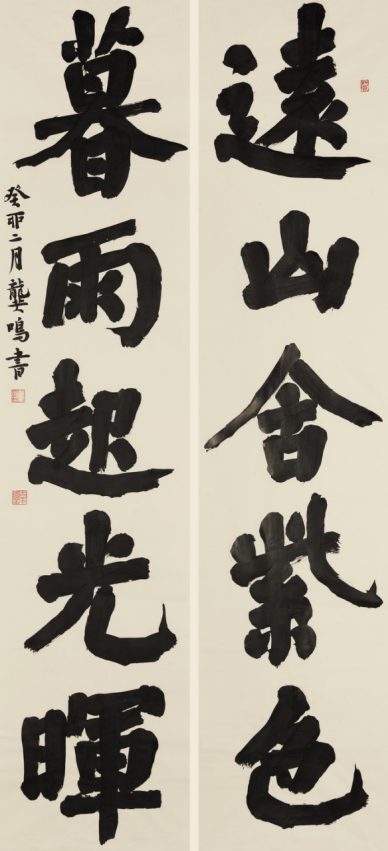 遠山含紫色
暮雨起光暉
癸卯二月龔鳴書